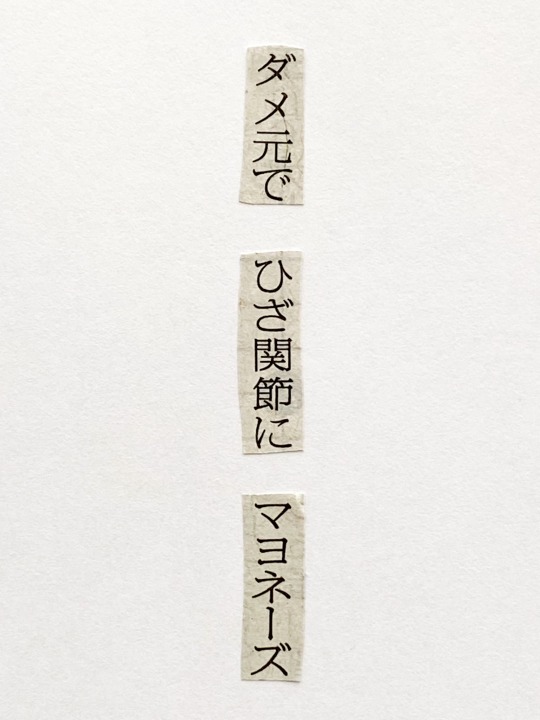 ダメ元で
ひざ関節に
マヨネーズ